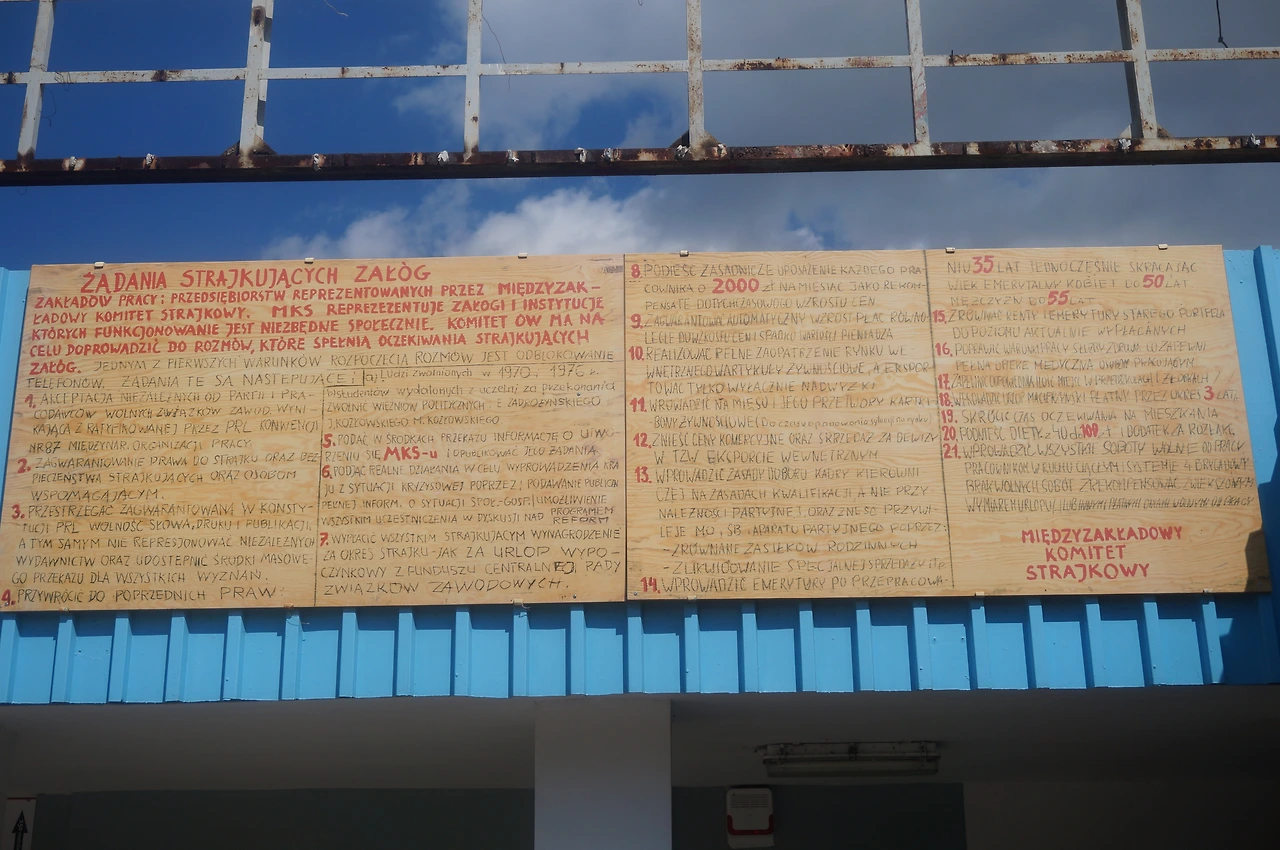 ŻĄDANIA STRAJKUJĄCYCH ZAŁÓG
ZAKŁADÓW PRACY I PRZEDSIĘBIORSTW REPREZENTOWANYCH PRZEZ MIĘDZYZAK-
ŁADOWY KOMITET STRAJKOWY. MKS REPREZENTUJE ZAŁOGI I INSTYTUCJE
KTÓRYCH FUNKCJONOWANIE JEST NIEZBĘDNE SPOŁECZNIE. KOMITET ÓW MA NA
CELU DOPROWADZIĆ DO ROZMÓW, KTÓRE SPEŁNIĄ OCZEKIWANIA STRAJKUJĄCYCH
ZAŁÓG. JEDNYM Z PIERWSZYCH WARUNKÓW ROZPOCZĘCIA ROZMÓW JEST ODBLOKOWANIE
TELEFONÓW. ŻĄDANIA TE SĄ NASTĘPUJĄCE:
1. AKCEPTACJA NIEZALEŻNYCH OD PARTII I PRA-
CODAWCÓW WOLNYCH ZWIĄZKÓW ZAWOD. WYNI-
KAJĄCA Z RATYFIKOWANEJ PRZEZ PRL KONWENCJI
NR 87 MIĘDZYNAR. ORGANIZACJI PRACY.
2. ZAGWARANTOWANIE PRAWA DO STRAJKU ORAZ BEZ-
PIECZEŃSTWA STRAJKUJĄCYCH ORAZ OSOBOM
WSPOMAGAJĄCYM.
3. PRZESTRZEGAĆ ZAGWARANTOWANĄ W KONSTY-
TUCJI PRL WOLNOŚĆ SŁOWA, DRUKU I PUBLIKACJI,
A TYM SAMYM NIE REPRESJONOWAĆ NIEZALEŻNYCH
WYDAWNICTW ORAZ UDOSTĘPNIĆ ŚRODKI MASOWE-
GO PRZEKAZU DLA WSZYSTKICH WYZNAŃ.
4. PRZYWRÓCIĆ DO POPRZEDNICH PRAW:
a) Ludzi zwolnionych w 1970, 1976 r.
b) studentów wydalonych z uczelni za przekonania
ZWOLNIĆ WIĘŹNIÓW POLITYCZNYCH: E. ZADROŻYŃSKIEGO
J. KOZŁOWSKIEGO M. KOZŁOWSKIEGO
5. PODAĆ W ŚRODKACH PRZEKAZU INFORMACJĘ O UTWO-
RZENIU SIĘ MKS-u I OPUBLIKOWAĆ JEGO ŻĄDANIA
6. PODAĆ REALNE DZIAŁANIA W CELU WYPROWADZENIA KRA
JU Z SYTUACJI KRYZYSOWEJ POPRZEZ: PODAWANIE PUBLICZN
PEŁNEJ INFORM. O SYTUACJI SPOŁ-GOSP. UMOŻLIWIENIE
WSZYSTKIM UCZESTNICZENIA W DYSKUSJI NAD PROGRAMEM
REFORM
7. WYPŁACIĆ WSZYSTKIM STRAJKUJĄCYM WYNAGRODZENIE
ZA OKRES STRAJKU-JAK ZA URLOP WYPO-
CZYNKOWY Z FUNDUSZU CENTRALNEJ, RADY
ZWIĄZKÓW ZAWODOWYCH.
8. PODNIEŚĆ ZASADNICZE UPOSAŻENIE KAŻDEGO PRA-
COWNIKA O 2000 zł NA MIESIĄC JAKO REKOM-
PENSATĘ DOTYCHCZASOWEGO WZROSTU CEN
9. ZAGWARANTOWAĆ AUTOMATYCZNY WZROST PŁAC RÓWNO
LEGLE DO WZROSTU CEN I SPADKU WARTOŚCI PIENIĄDZA
10. REALIZOWAĆ PEŁNE ZAOPATRZENIE RYNKU WE-
WNĘTRZNEGO W ARTYKUŁY ŻYWNOŚCIOWE, A EKSPOR-
TOWAĆ TYLKO WYŁĄCZNIE NADWYŻKI
11. WPROWADZIĆ NA MIĘSO I JEGO PRZETWORY KARTKI-
BONY ŻYWNOŚCIOWE (do czasu opanowania sytuacji na rynku)
12. ZNIEŚĆ CENY KOMERCYJNE ORAZ SPRZEDAŻ ZA DEWIZY
W TZW. EKSPORCIE WEWNĘTRZNYM
13. WPROWADZIĆ ZASADY DOBORU KADRY KIEROWNI
CZEJ NA ZASADACH KWALIFIKACJI A NIE PRZY
NALEŻNOŚCI PARTYJNEJ, ORAZ ZNIEŚĆ PRZYWI-
LEJE MO, SB I APARATU PARTYJNEGO POPRZEZ:
- ZRÓWNANIE ZASIŁKÓW RODZINNYCH
- ZLIKWIDOWANIE SPECJALNEJ SPRZEDAŻY ITP
14. WPROWADZIĆ EMERYTURY PO PRZEPRACOWA-
NIU 35 LAT JEDNOCZEŚNIE SKRACAJĄC
WIEK EMERYTALNY KOBIET DO 50 LAT
MĘŻCZYZN DO 55 LAT
15. ZRÓWNAĆ RENTY I EMERYTURY STAREGO PORTFELA
DO POZIOMU AKTUALNIE WYPŁACANYCH
16. POPRAWIĆ WARUNKI PRACY SŁUŻBY ZDROWIA CO ZAPEWNI
PEŁNĄ OPIEKĘ MEDYCZNĄ OSOBOM PRACUJĄCYM
17. ZAPEWNIĆ ODPOWIEDNIĄ ILOŚĆ MIEJSC W PRZEDSZKOLACH I ŻŁOBKACH
18. WPROWADZIĆ URLOP MACIERZYŃSKI PŁATNY PRZEZ OKRES 3 LAT
19. SKRÓCIĆ CZAS OCZEKIWANIA NA MIESZKANIA
20. PODNIEŚĆ DIETY z 40 do 100 zł I DODATEK ZA ROZŁĄKĘ
21. WPROWADZIĆ WSZYSTKIE SOBOTY WOLNE OD PRACY
PRACOWNIKOM W RUCHU CIĄGŁYM I SYSTEMIE 4 BRYGADOWYM
BRAK WOLNYCH SOBÓT ZREKOMPENSOWAĆ ZWIĘKSZONYM
WYMIAREM URLOPU LUB INNYMI PŁATNYMI DNIAMI WOLNYMI OD PRACY
MIĘDZYZAKŁADOWY
KOMITET
STRAJKOWY